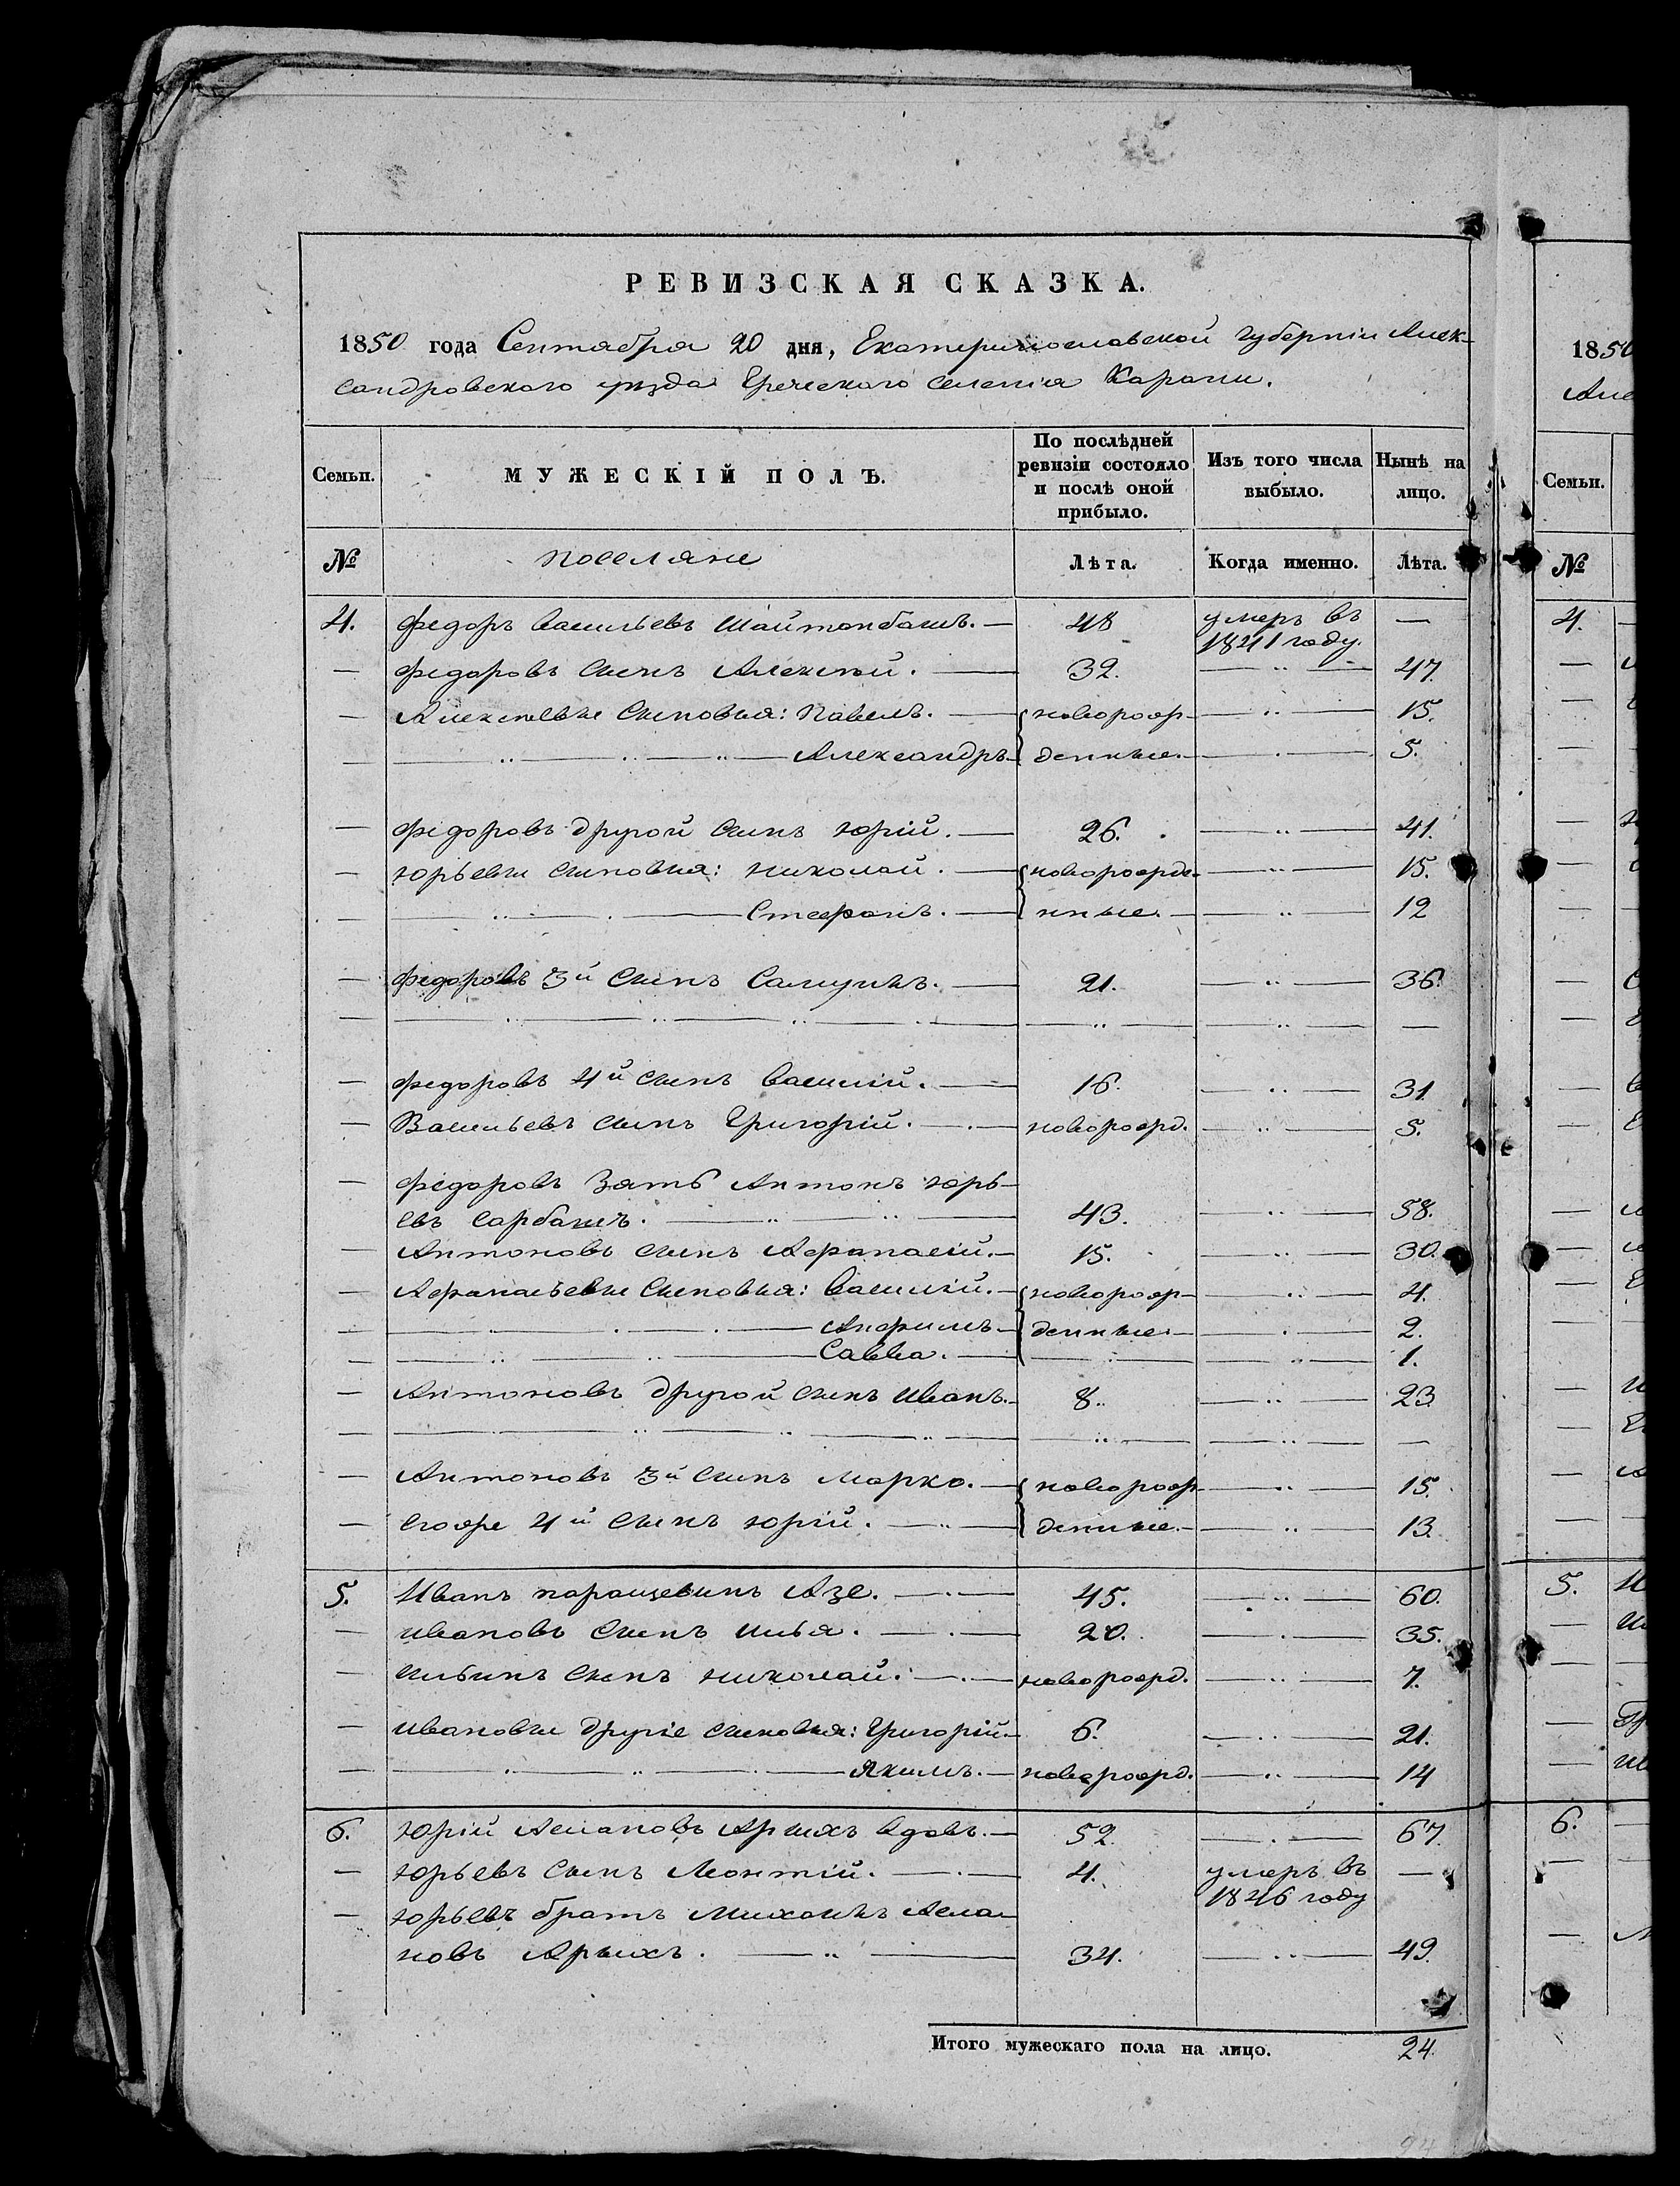 РЕВИЗСКАЯ СКАЗКА.
1850 года Сентября 20 дня, Екатеринославской губерніи Алек-
сандровского уѣзда Греческого селенія Карани.
Семьи. МУЖЕСКІЙ ПОЛЪ. По послѣдней ревизіи состояло и послѣ оной прибыло. Изъ того числа выбыло. Нынѣ на лицо.
№ поселяне Лѣта. Когда именно. Лѣта.
4. Федоръ Васильевъ Шайтанбашъ. — 48 умеръ въ 1841 году. —
— Федоровъ сынъ Алексѣй. — 32. — 47.
— Алексѣевы сыновья: Павелъ. — новорож- — 15.
— Александръ — денные. — 5.
— Федоровъ другой сынъ Юрій. — 26. — 41.
— Юрьевы сыновья: Николай. — новорожде- — 15.
— Стефанъ. — нные. — 12
— Федоровъ 3й сынъ Самуилъ. — 21. — 36.
— Федоровъ 4й сынъ Василій. — 16. — 31.
— Васильевъ сынъ Григорій. — новорожд. — 5.
— Федоровъ Зять Антонъ Юрь-
евъ Сарбашъ. — 43. — 58.
— Антоновъ сынъ Афанасій. — 15. — 30.
— Афанасьевы сыновья: Василій. — новорож- — 4.
— Анфимъ — денные. — 2.
— Савва. — 1.
— Антоновъ другой сынъ Иванъ. — 8. — 23
— Антоновъ 3й сынъ Марко. — новорож- — 15.
— егоже 4й сынъ Юрій. — денные. — 13.
5. Иванъ Паращевинъ Азе. — 45. — 60.
— Ивановъ сынъ Илья. — 20. — 35.
— Ильинъ сынъ Николай. — новорожд. — 7.
— Ивановы другіе сыновья: Григорій — 6. — 21.
— Якимъ. — новорожд. — 14
6. Юрій Аслановъ Арыхъ вдовъ. — 52. — 67.
— Юрьевъ сынъ Леонтій. — 4. умеръ въ 1846 году —
— Юрьевъ братъ Михаилъ Асла-
новъ Арыхъ. — 34. — 49.
Итого мужескаго пола на лицо. 24.
1850
Але
Семьи.
№
4.
5.
6.